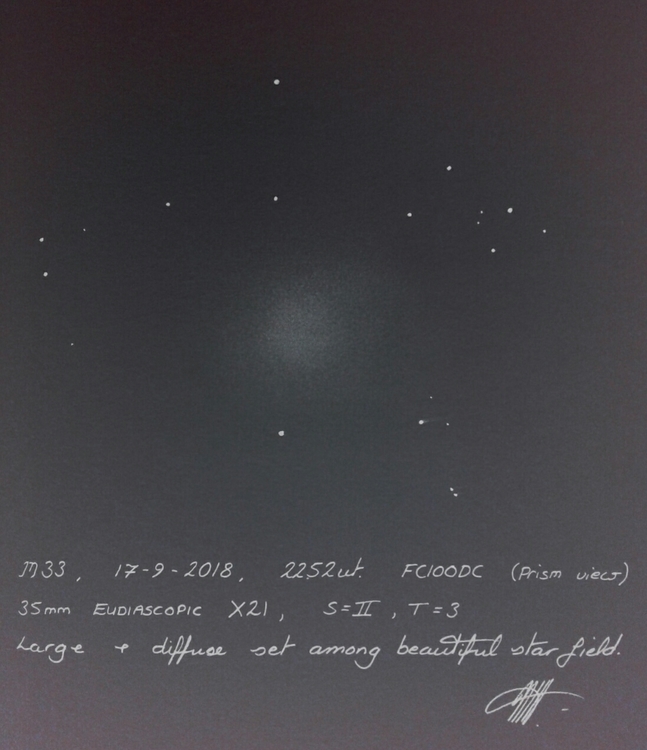 M33, 17-9-2018, 2252ut. FC100DC (Prism view)
35mm EUDIASCOPIC X21, S=II, T=3
Large + diffuse set among beautiful star field.